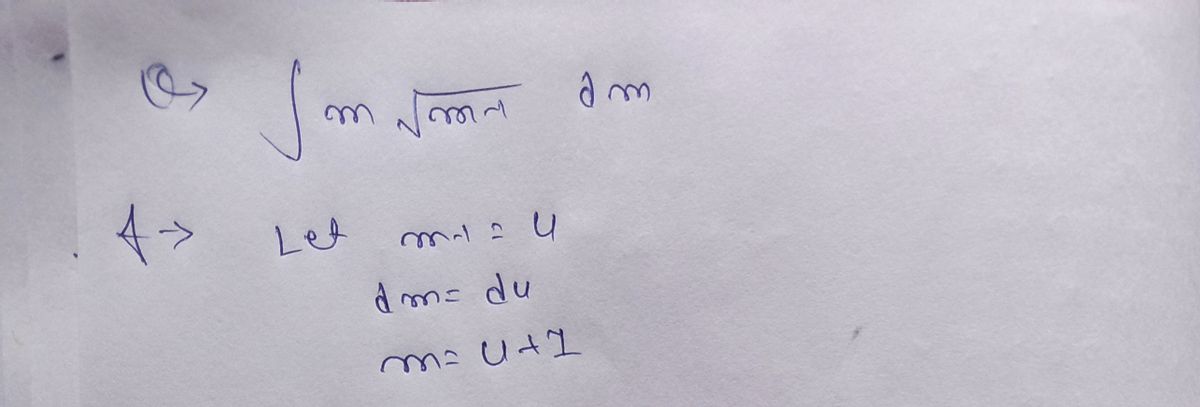 Q→ ∫ m √(m-1) dm
A→ Let m-1 = u
dm = du
m = u+1